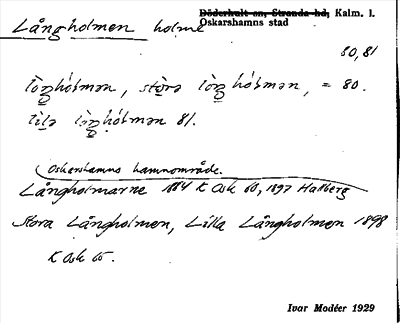 Långholmen holme
Döderhult sn, Stranda hd, Kalm. l.
Oskarshamns stad
80,81
lòŋhólmən, stòrə lòŋhólmən, = 80.
lìlə lòŋhólmən 81.
Oskarshamns hamnområde.
Långholmarne 1884 K Osk 60, 1897 Hallberg
Stora Långholmen, Lilla Långholmen 1898
K Osk 65.
Ivar Modéer 1929